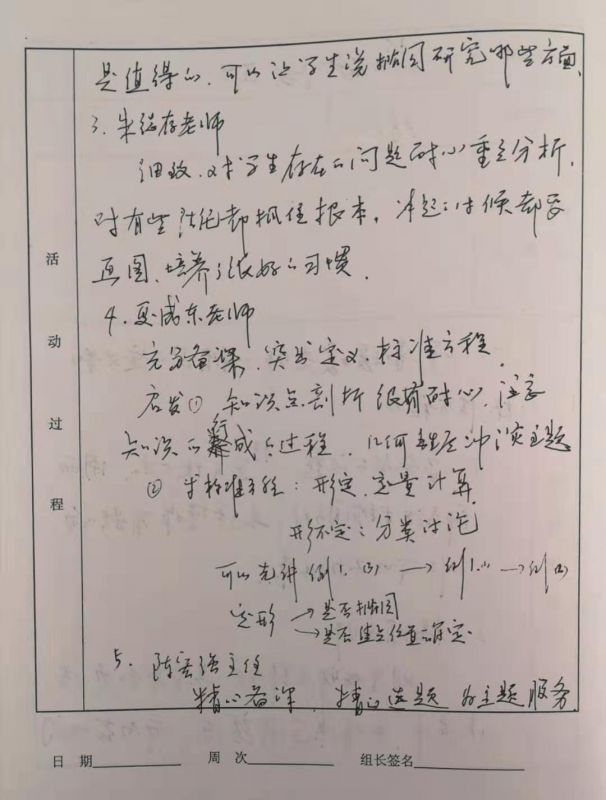 是值得的,可以让学生说椭圆研究哪些方面.
3. 朱红存老师
细致、对学生存在的问题耐心重点分析,
对有些结论都抓住根本,讲题的时候都要
画图、培养了很好的习惯.
4. 夏成东老师
充分备课,突出定义、标准方程.
启发① 知识点剖析很有耐心,注意
知识的形成的过程,几何性质冲淡主题
② 求标准方程:形定,定量计算
形不定:分类讨论
可以先讲例1.(3) → 例1.(1) → 例(2)
定形 → 是否椭圆
→ 是否焦点位置确定.
5. 陈宏强主任
精心备课、精心选题 为主题服务.
活动过程
日 期 周 次 组长签名